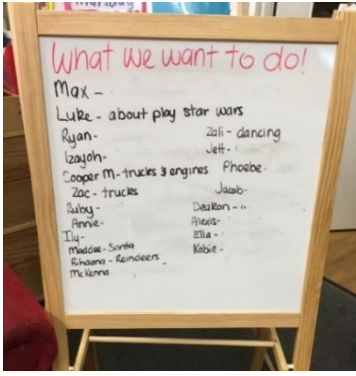 What we want to do!
Max -
Luke - about play star wars
Ryan-
Izayah-
Cooper M-trucks & engines
Zac - trucks
Ruby-
Annie-
Ily-
Maddee - Santa
Rihaana - Reindeers
McKenna
Zali - dancing
Jett-
Phoebe-
Jacob-
Deakon - "
Alexis-
Ella -
Kobie -